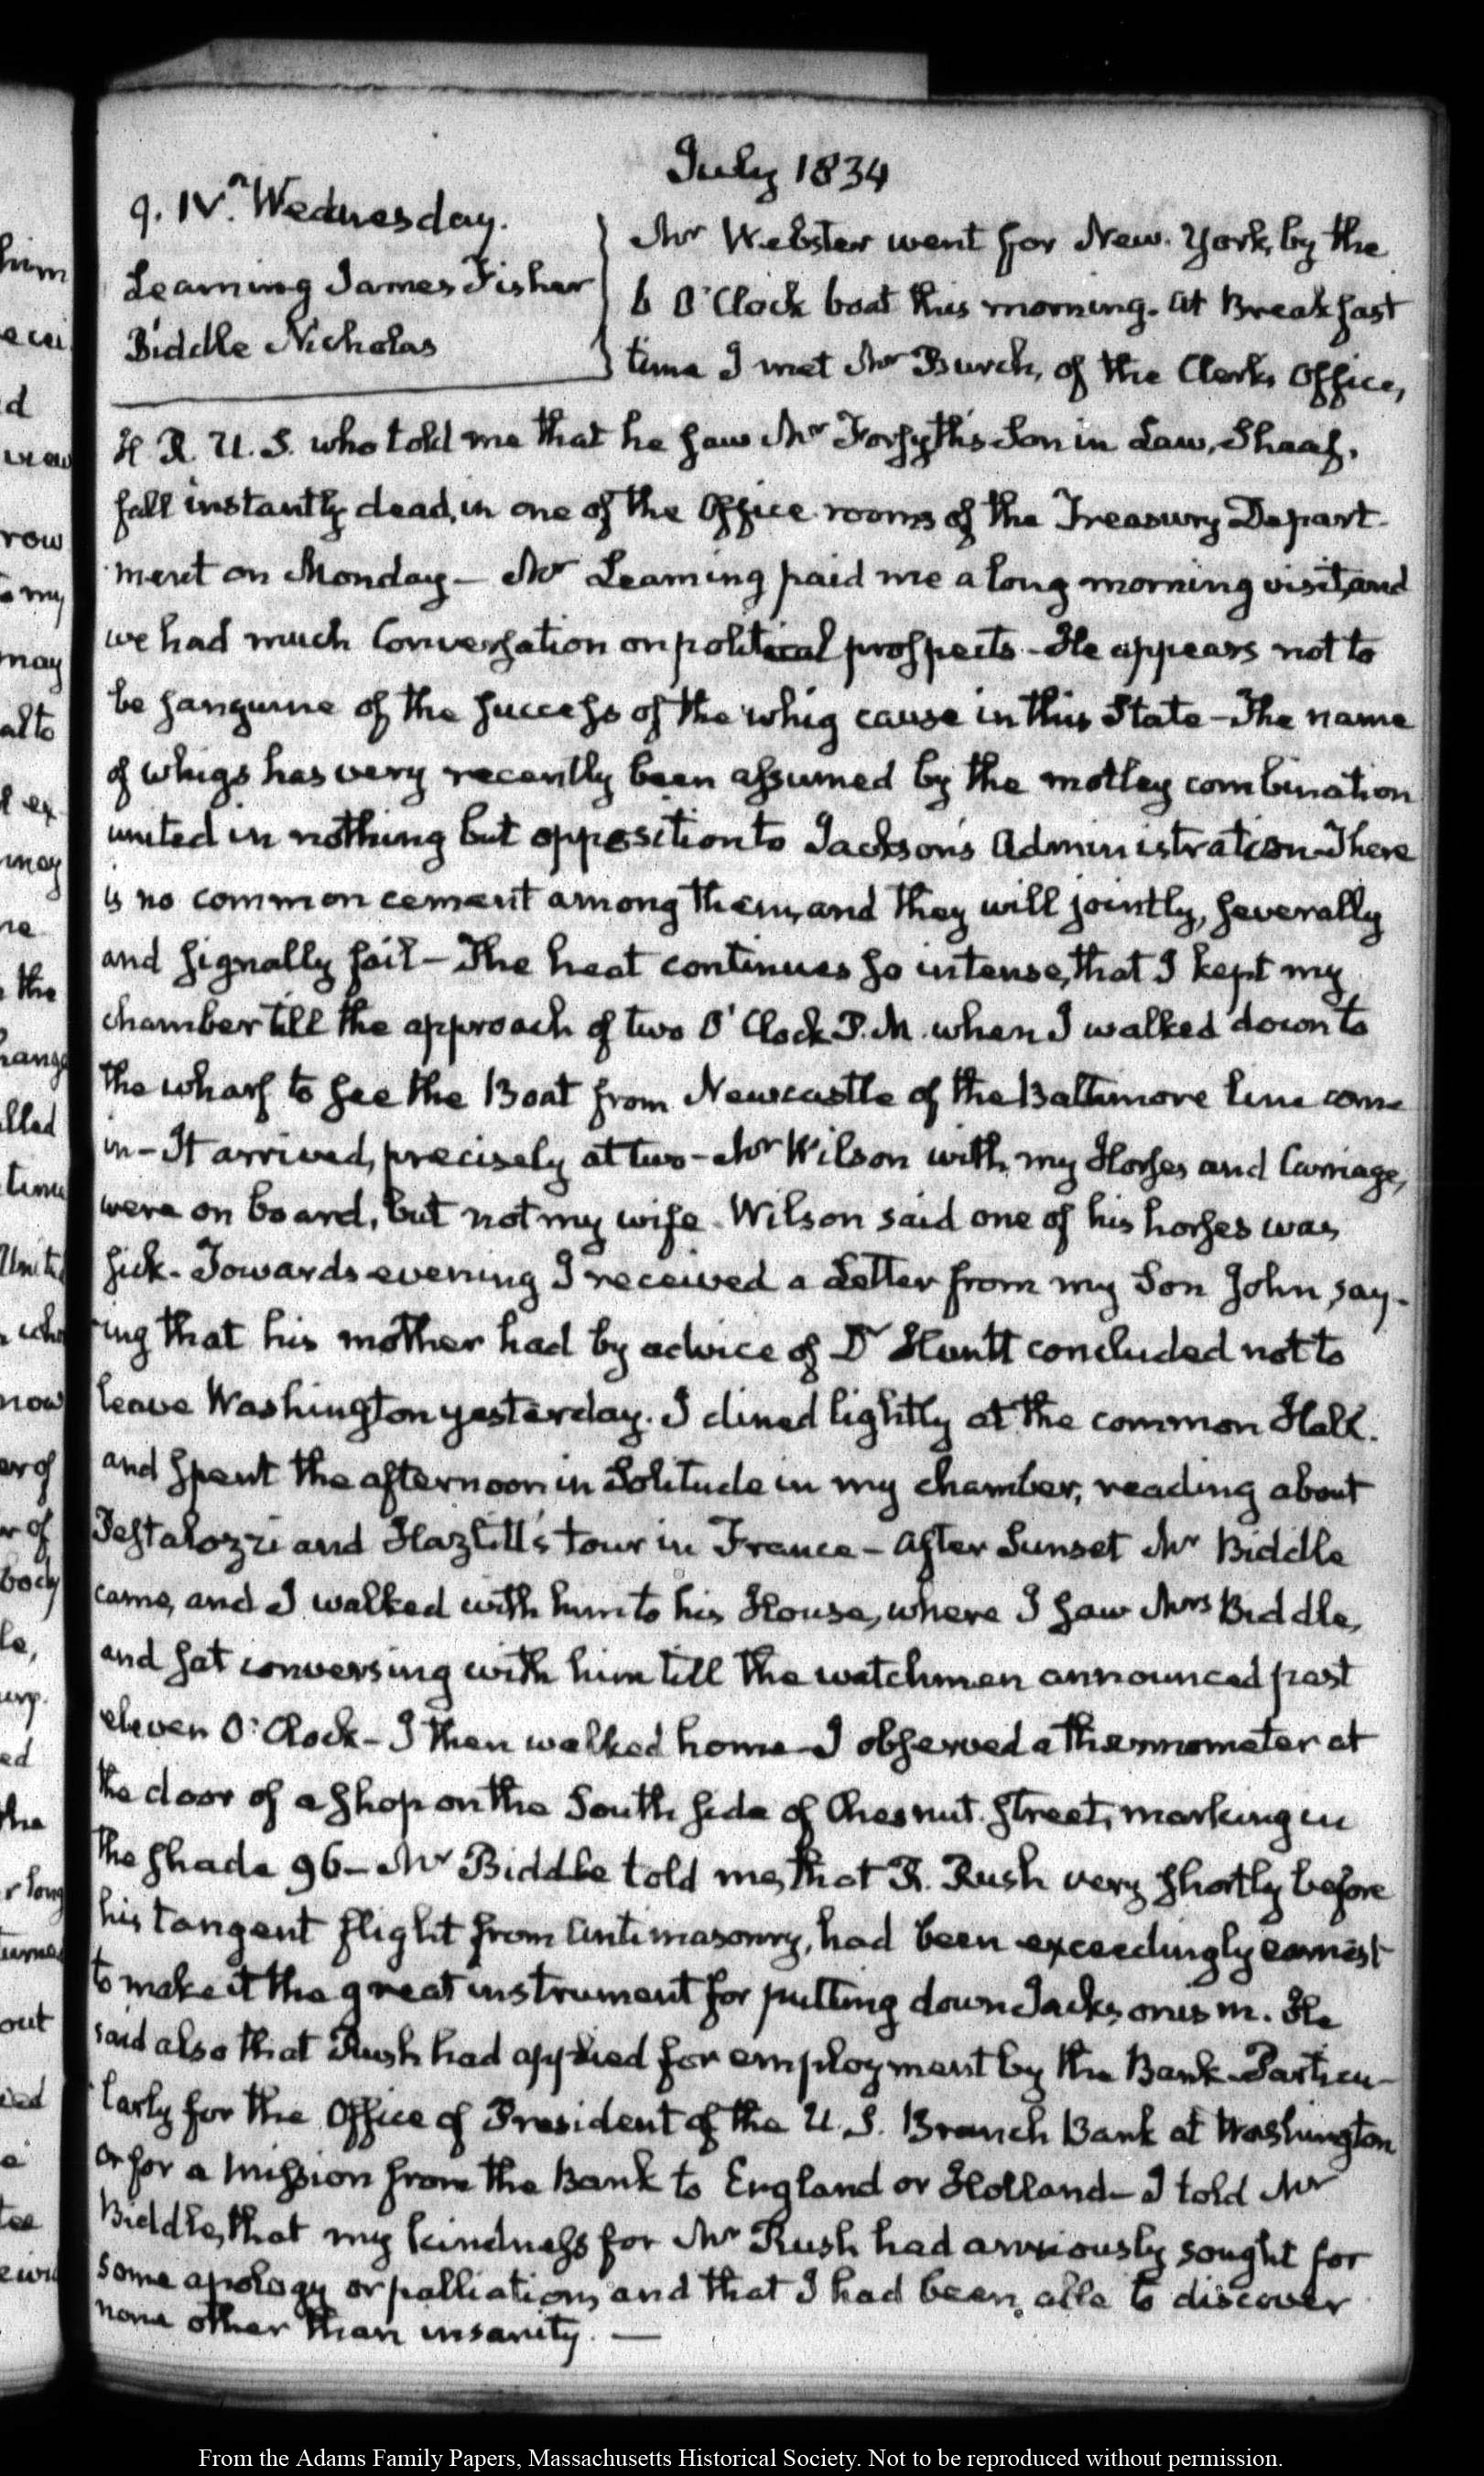 July 1834
9. IV.n Wednesday.
Leaming James Fisher
Biddle Nicholas
Mr Webster went for New-York, by the
6 O'Clock boat this morning. At Breakfast
time I met Mr Burch, of the Clerk's Office,
H. R. U. S. who told me that he saw Mr Forsyth's Son in Law, Shaaf,
fall instantly dead, in one of the Office rooms of the Treasury Depart-
ment on Monday— Mr Leaming paid me a long morning visit, and
we had much Conversation on political prospects— He appears not to
be sanguine of the success of the whig cause in this State— The name
of whigs has very recently been assumed by the motley combination
united in nothing but opposition to Jackson's Administration— There
is no common cement among them, and they will jointly, severally
and signally fail— The heat continues so intense, that I kept my
chamber till the approach of two O'Clock P.M. when I walked down to
the wharf to see the Boat from Newcastle of the Baltimore line come
in— It arrived, precisely at two— Mr Wilson with my Horses and Carriage,
were on board, but not my wife. Wilson said one of his horses was
sick— Towards evening I received a Letter from my Son John, say-
ing that his mother had by advice of Dr Huntt concluded not to
leave Washington yesterday. I dined lightly at the common Hall.
and spent the afternoon in Solitude in my chamber, reading about
Pestalozzi and Hazlitt's tour in France— After Sunset Mr Biddle
came, and I walked with him to his House, where I saw Mrs Biddle,
and sat conversing with him till the watchmen announced past
eleven O'Clock— I then walked home— I observed a thermometer at
the door of a shop on the South side of Chesnut. street, marking in
the shade 96— Mr Biddle told me, that R. Rush very shortly before
his tangent flight from Antimasonry, had been exceedingly earnest
to make it the great instrument for putting down Jacksonism. He
said also that Rush had applied for employment by the Bank— Particu-
larly for the Office of President of the U. S. Branch Bank at Washington
or for a Mission from the Bank to England or Holland— I told Mr
Biddle, that my kindness for Mr Rush had anxiously sought for
some apology or palliation, and that I had been able to discover
none other than insanity. —
him
d
row
my
may
alto
the
time
now
er of
body
ed
the
out
From the Adams Family Papers, Massachusetts Historical Society. Not to be reproduced without permission.